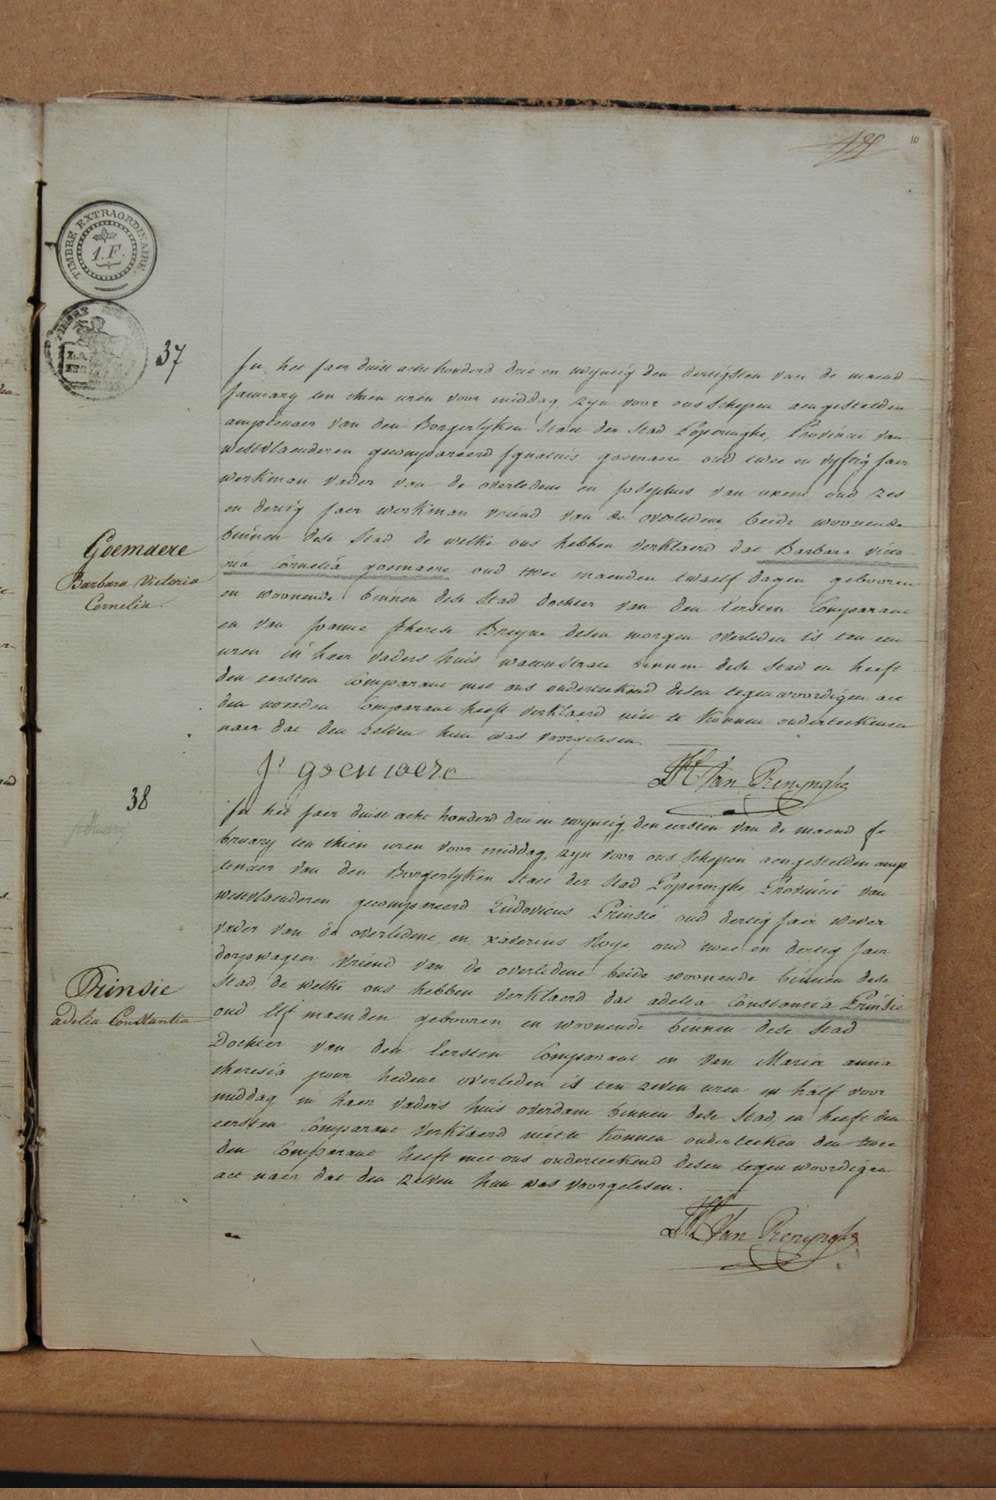 10
TIMBRE EXTRAORDINAIRE.
1.F.
37
In het jaer duist acht honderd drie en twyntig den dertigsten van de maend
january ten thien uren voor middag, zyn voor ons schepen aengestelden
amptenaer van den Borgerlyken Staet der Stad Poperinghe, Provincie van
westvlaenderen gecompareerd Ignatius goemaere oud twee en vyftig jaer
werkman vader van de overledene en Josephus van oud zes
en dertig jaer werkman vriend van de overledene beide woonende
binnen dese Stad de welke ons hebben verklaerd dat Barbara victo
ria Cornelia goemaere oud twee maenden twaelf dagen gebooren
en woonende binnen dese Stad dochter van den Eersten Comparant
en van Joanne Therese Breyne desen morgen overleden is ten een
uren in haer vaders huis binnen dese Stad en heeft
den eersten comparant met ons onderteekend desen tegenwoordigen act
den tweeden Comparant heeft verklaerd niet te konnen onderteekenen
naer dat den zelven hun was voorgelesen
Goemaere
Barbara Victoria
Cornelia
Js goemaere
Van Renynghe
38
february
In het jaer duist acht honderd drie en twyntig, den eersten van de maend fe
bruary ten thien uren voor middag, zyn voor ons schepen aengestelden amp
tenaer van den Borgerlyken Staet der Stad Poperinghe Provincie van
westvlaenderen gecompareerd Ludovicus Prinsie oud dertig jaer wever
vader van de overledene, en xaverius Huye oud twee en dertig jaer
vriend van de overledene beide woonende binnen dese
Stad, de welke ons hebben verklaerd dat adelia Constantia Prinsie
oud Elf maenden gebooren en woonende binnen dese Stad
Dochter van den Eersten Comparant en van Maria anna
theresia heden overleden is ten zeven uren en half voor
middag in haer vaders huis overdam binnen dese Stad, en heeft den
eersten Comparant verklaerd niet te konnen onderteeken den twee
den Comparant heeft met ons onderteekend desen tegenwoordigen
act naer dat den zelven hun was voorgelesen.
Prinsie
adelia Constantia
Van Renynghe